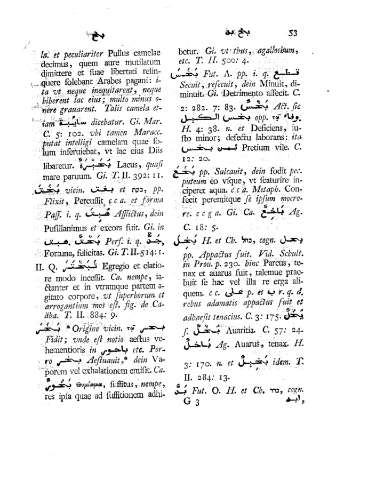 53
la. et peculiariter Pullus camelae
decimus, quem aure mutilatum
dimittere et suae libertati relin-
quere solebant Arabes pagani: ita
ut neque inequitarent, neque
biberent lac eius; multo minus o-
nere grauarent. Talis camela et-
iam dicebatur. Gi. Mar.
C. 5: 102. vbi tamen Maracc.
putat intelligi camelam quae fo-
lum inseruiebat, vt lac eius Diis
libaretur. Lacus, quasi
mare paruum. Gi. T. II. 392: 11.
بخت vicin. et pp.
Flixit, Percussit. c c a. et forma
Pass. i. q. Afflictus, dein
Pusillanimus et excors fuit. Gi. in
بخت Pers. i. q. جد
Fortuna, felicitas. Gi. T. II. 514: 1.
II. Q. Egregio et elatio-
re modo incessit. Ca. nempe, ia-
ctanter et in vtramque partem a-
gitato corpore, vt superborum et
arrogantium mos est. fig. de Ca-
åba. T. II. 884: 9.
بخر *Origine vicin.
Fidit; vnde est notio aestus ve-
hementioris in etc. Por-
ro بخر Aestuauit*, dein Va-
porum vel exhalationem emisit. Ca.
بخور suffitus, nempe,
res ipsa quae ad suffitionem adhi-
betur. Gi. vt thus, agallochum,
etc. T. II. 500: 4.
بخس Fut. A. pp. i. q. قطع
Secuit, resecuit, dein Minuit, di-
minuit. Gi. Detrimento affecit. C.
2: 282. 7: 83. بخس Act. sic
بخس الكيل opp.
H. 4: 38. n. et Deficiens, iu-
sto minor: بخس Pretium vile. C.
12: 20.
بخع pp. Sulcauit, dein fodit pec.
puteum eo vsque, vt featurire in-
ciperet aqua. c c a. Metaph. Con-
fecit peremitque se ipsum moero-
re. c c g a. Gi. Ca. باخع Ag.
C. 18: 5.
بخل H. et Ch. cogn.
pp. Appactus fuit. Vid. Schult.
in Prou. p. 230. hinc Parcus, te-
nax et auarus fuit, talemue prae-
buit se hac vel illa re erga ali-
quem. c c على p. et ب r. q. d.
rebus adamatis appactus fuit et
adhaesit tenacius. C. 3: 175.
بخل f. Auaritia. C. 57: 24.
باخل Ag. Auarus, tenax. H.
3: 170. n. et بخيل idem. T.
II. 284: 13.
بد Fut. O. H. et Ch. cogn.
G 3